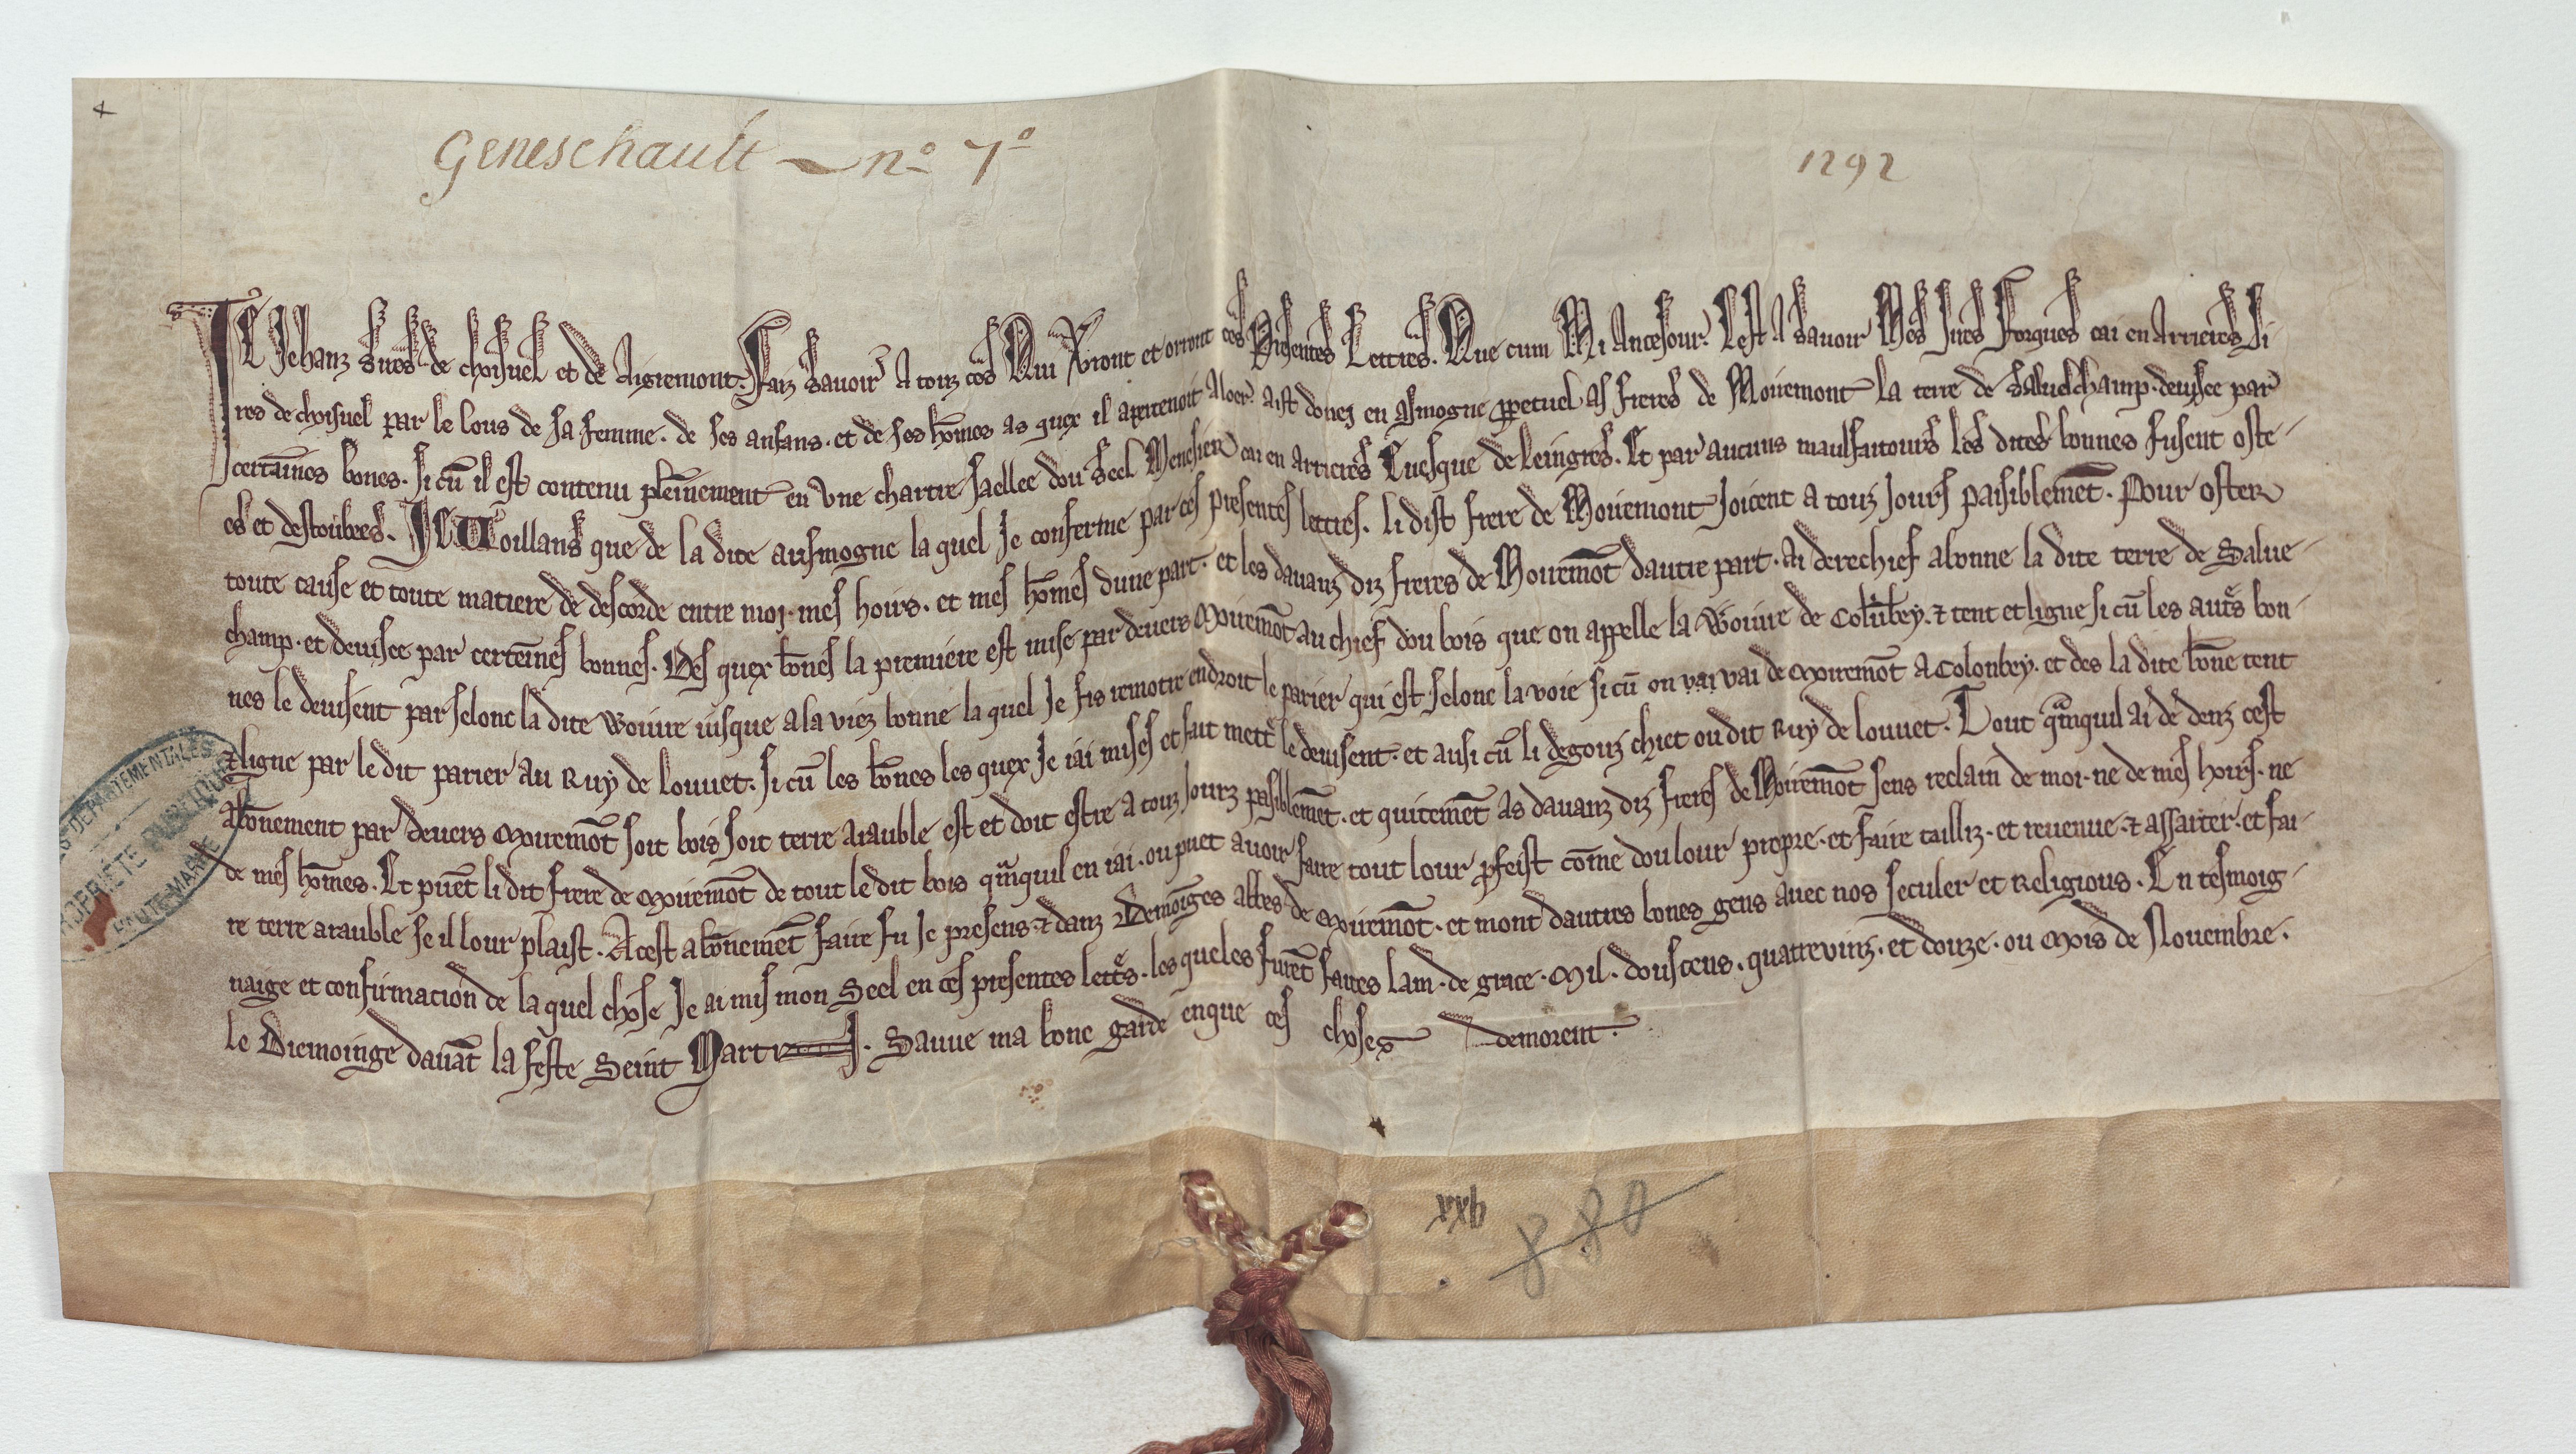 Geneschault n.º 7.º
1292
JE Jehanz sires de choisuel et de Aigremont. Faiz savoir A touz ces Qui verront et orront ces Presentes Lettres. Que cum Mi Ancesour. Cest A savoir Mes sires Forques cai en arrieres Si
res de choisuel par le lous de sa femme. de ses anfans. et de ses hōmes as quex il apertenoit Aloer. aist donez en asmogne ꝑpetuel as freres de Moiremont la terre de Saluelchamp. deuisee par
certaīnes bones. si cū il est contenu pleīnement en vne chartre saellee dou seel cai en arrieres Euesque de Leingres. Et par aucuns maulfaitours les dites bonnes fusent oste-
es et destoubees. JE Voillans que de la dite ausmogne la quel Je conferme par ces presentes lettres. li dist frere de Moiremont Joicent a touz Jours paisiblemēt. Pour oster
toute cause et toute matiere de descorde entre moi. mes hoirs. et mes hōmes dune part. et les dauanz diz freres de Moiremōt dautre part. Ai derechief abonne la dite terre de Salue-
champ. et deuisee par certeīnes bonnes. Des quex bōnes la premiere est mise par deuers Moiremōt au chief dou bois que on appelle la Woiure de Colūbey. ⁊ tent et ligne si cū les autres bon-
nes le deuisent par selonc la dite woiure iusque a la viez bonne la quel Je fis remotre endroit le parier qui est selonc la voie si cū on vai vai de Moiremōt a Colonbey. et des la dite bōne tent
⁊ ligne par le dit parier au Ruy de louuet. si cū les bōnes les quex Je iai mises et fait mettre le deuisent. et ausi cū li degouz chiet ou dit Ruy de louuet. Tout quanquil ai de denz cest
abōnement par deuers Moiremōt soit bois soit terre arauble est et doit estre a touz Jourz paisiblemēt. et quitemēt as dauanz diz freres de Moiremōt sens reclaīn de moi. ne de mes hoirs. ne
de mes hōmes. Et puēt li dit frere de Moiremōt de tout le dit bois quanquil en iai. ou puet auoir faire tout lour ꝓfeist cōme dou lour propre. et faire tailliz. et reuenue. ⁊ assarter. et fai-
re terre arauble se il lour plaist. A cest abōnemēt faire fu Je presens. ⁊ danz abbes de Moiremōt. et mont dautres bones gens auec nos seculer et Religious. En tesmoig-
naige et confirmacion de la quel chose Je ai mis mon Seel en ces presentes lettres. les queles furēt faites lan. de grace. Mil. douscens. quatrevinz. et douze. ou Mois de Nouembre.
le Diemoinge dauāt la feste Seint Martin. Sauue ma bone garde enque ces choses demorent.
xxb
880
DEPARTEMENTALES
PROPRIETE PUBLIQUE
HAUTE-MARNE